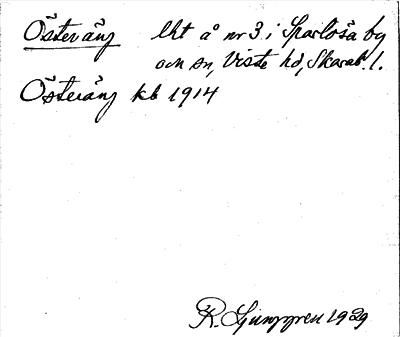 Österäng lht å nr 3 i Sparlösa by
och sn, Viste hd, Skarab. l.
Österäng kb 1914
R. Ljunggren 1929